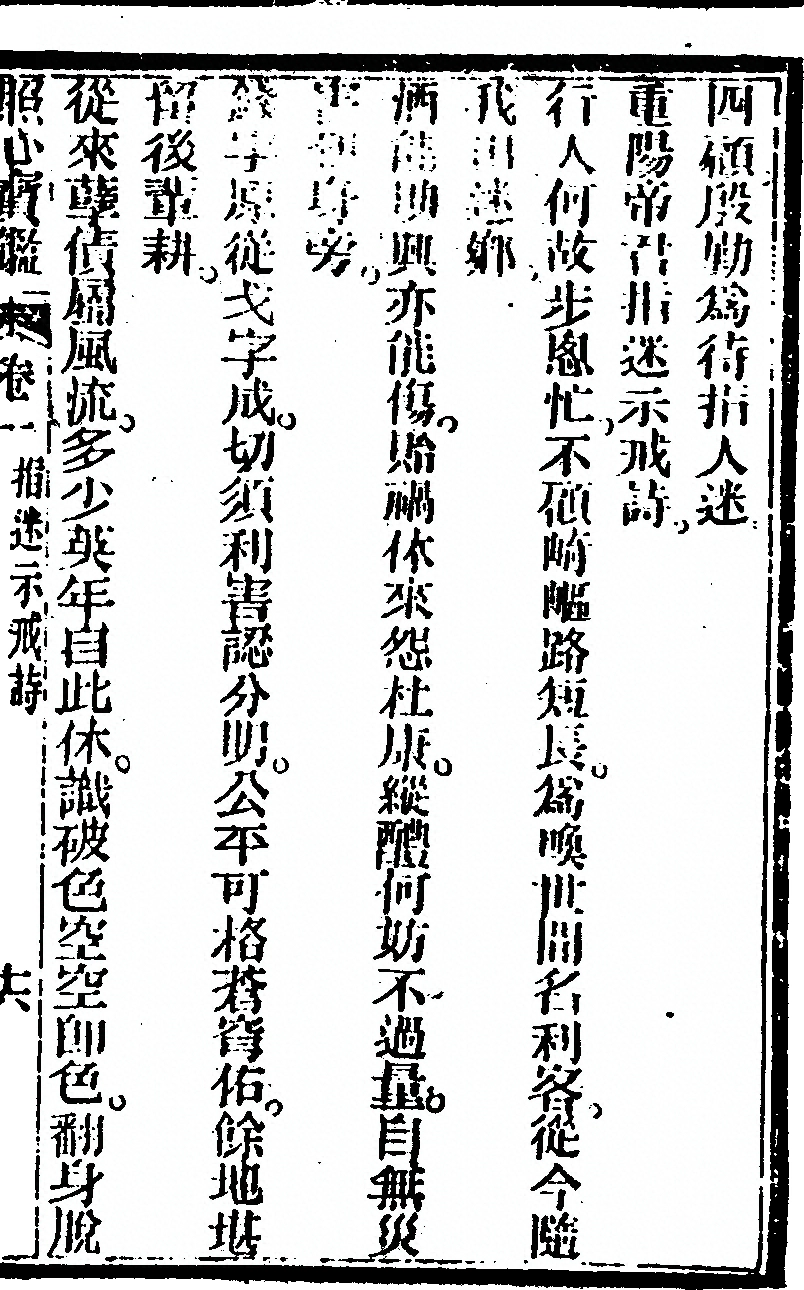 四顧殷勤爲待指人迷
重陽帝君指迷示戒詩。
行人何故步悤忙。不顧崎嶇路短長。爲喚世間名利客。從今隨
我出迷鄉。
酒能助興亦能傷。貽禍休來怨杜康。縱醴何妨不過量。自無災
到身旁。
錢字原從戈字成。切須利害認分明。公平可格蒼穹佑。餘地堪
留後輩耕。
從來孽債屬風流。多少英年自此休。識破色空空卽色。翻身脫
照心寶鑑 卷一 指迷示戒詩 六